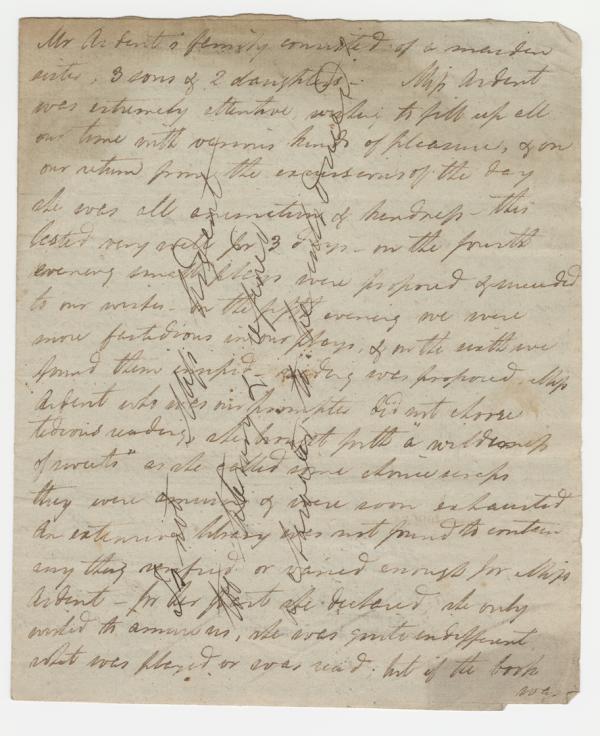 Mr Ardent's family consisted of a maiden
sister, 3 sons & 2 daughters — Miss Ardent
was extremely attentive, wishing to fill up all
our time with various kinds of pleasure, & on
our return from the excursions of the day
she was all animation & kindness — this
lasted very well for 3 days — on the fourth
evening small plays were proposed & succeeded
to our wishes — on the fifth evening we were
more fastidious in our plays, & on the sixth we
found them insipid — reading was proposed, Miss
Ardent who was our prompter did not choose
tedious reading, she brought forth "a wilderness
of sweets" as she called some choice scraps
they were amusing & were soon exhausted
An extensive library was not found to contain
any thing refined or varied enough for Miss
Ardent — for her part she declared, she only
wished to amuse us, she was quite indifferent
what was played or was read. but if the book
was
Miss Ardent
opened